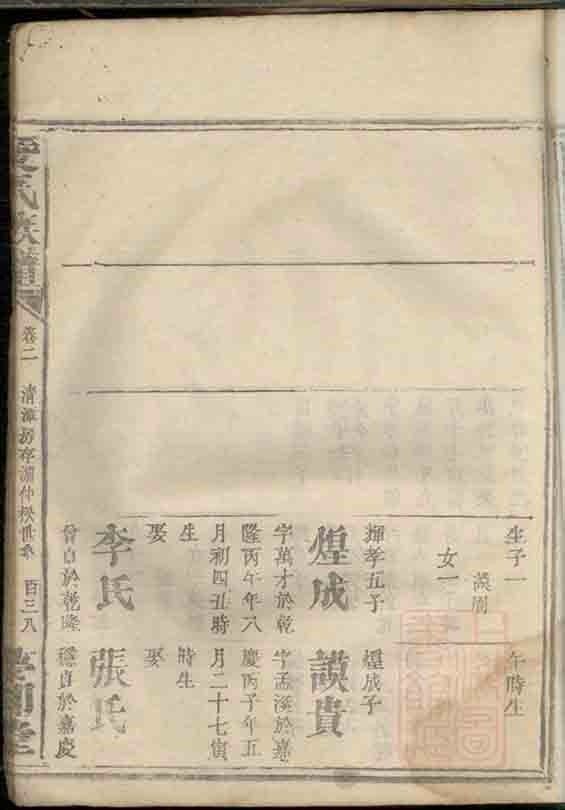 生子一
謨周
女一
煇孝五子
煌成
字萬才於乾
隆丙午年八
月初四丑時
生
娶
李氏
曾自於乾隆
午時生
煌成子
謨貴
字孟溪於嘉
慶丙子年五
月二十七寅
時生
娶
張氏
穩貞於嘉慶
氏族譜
卷二
清漳房存
仲
世系
百三八